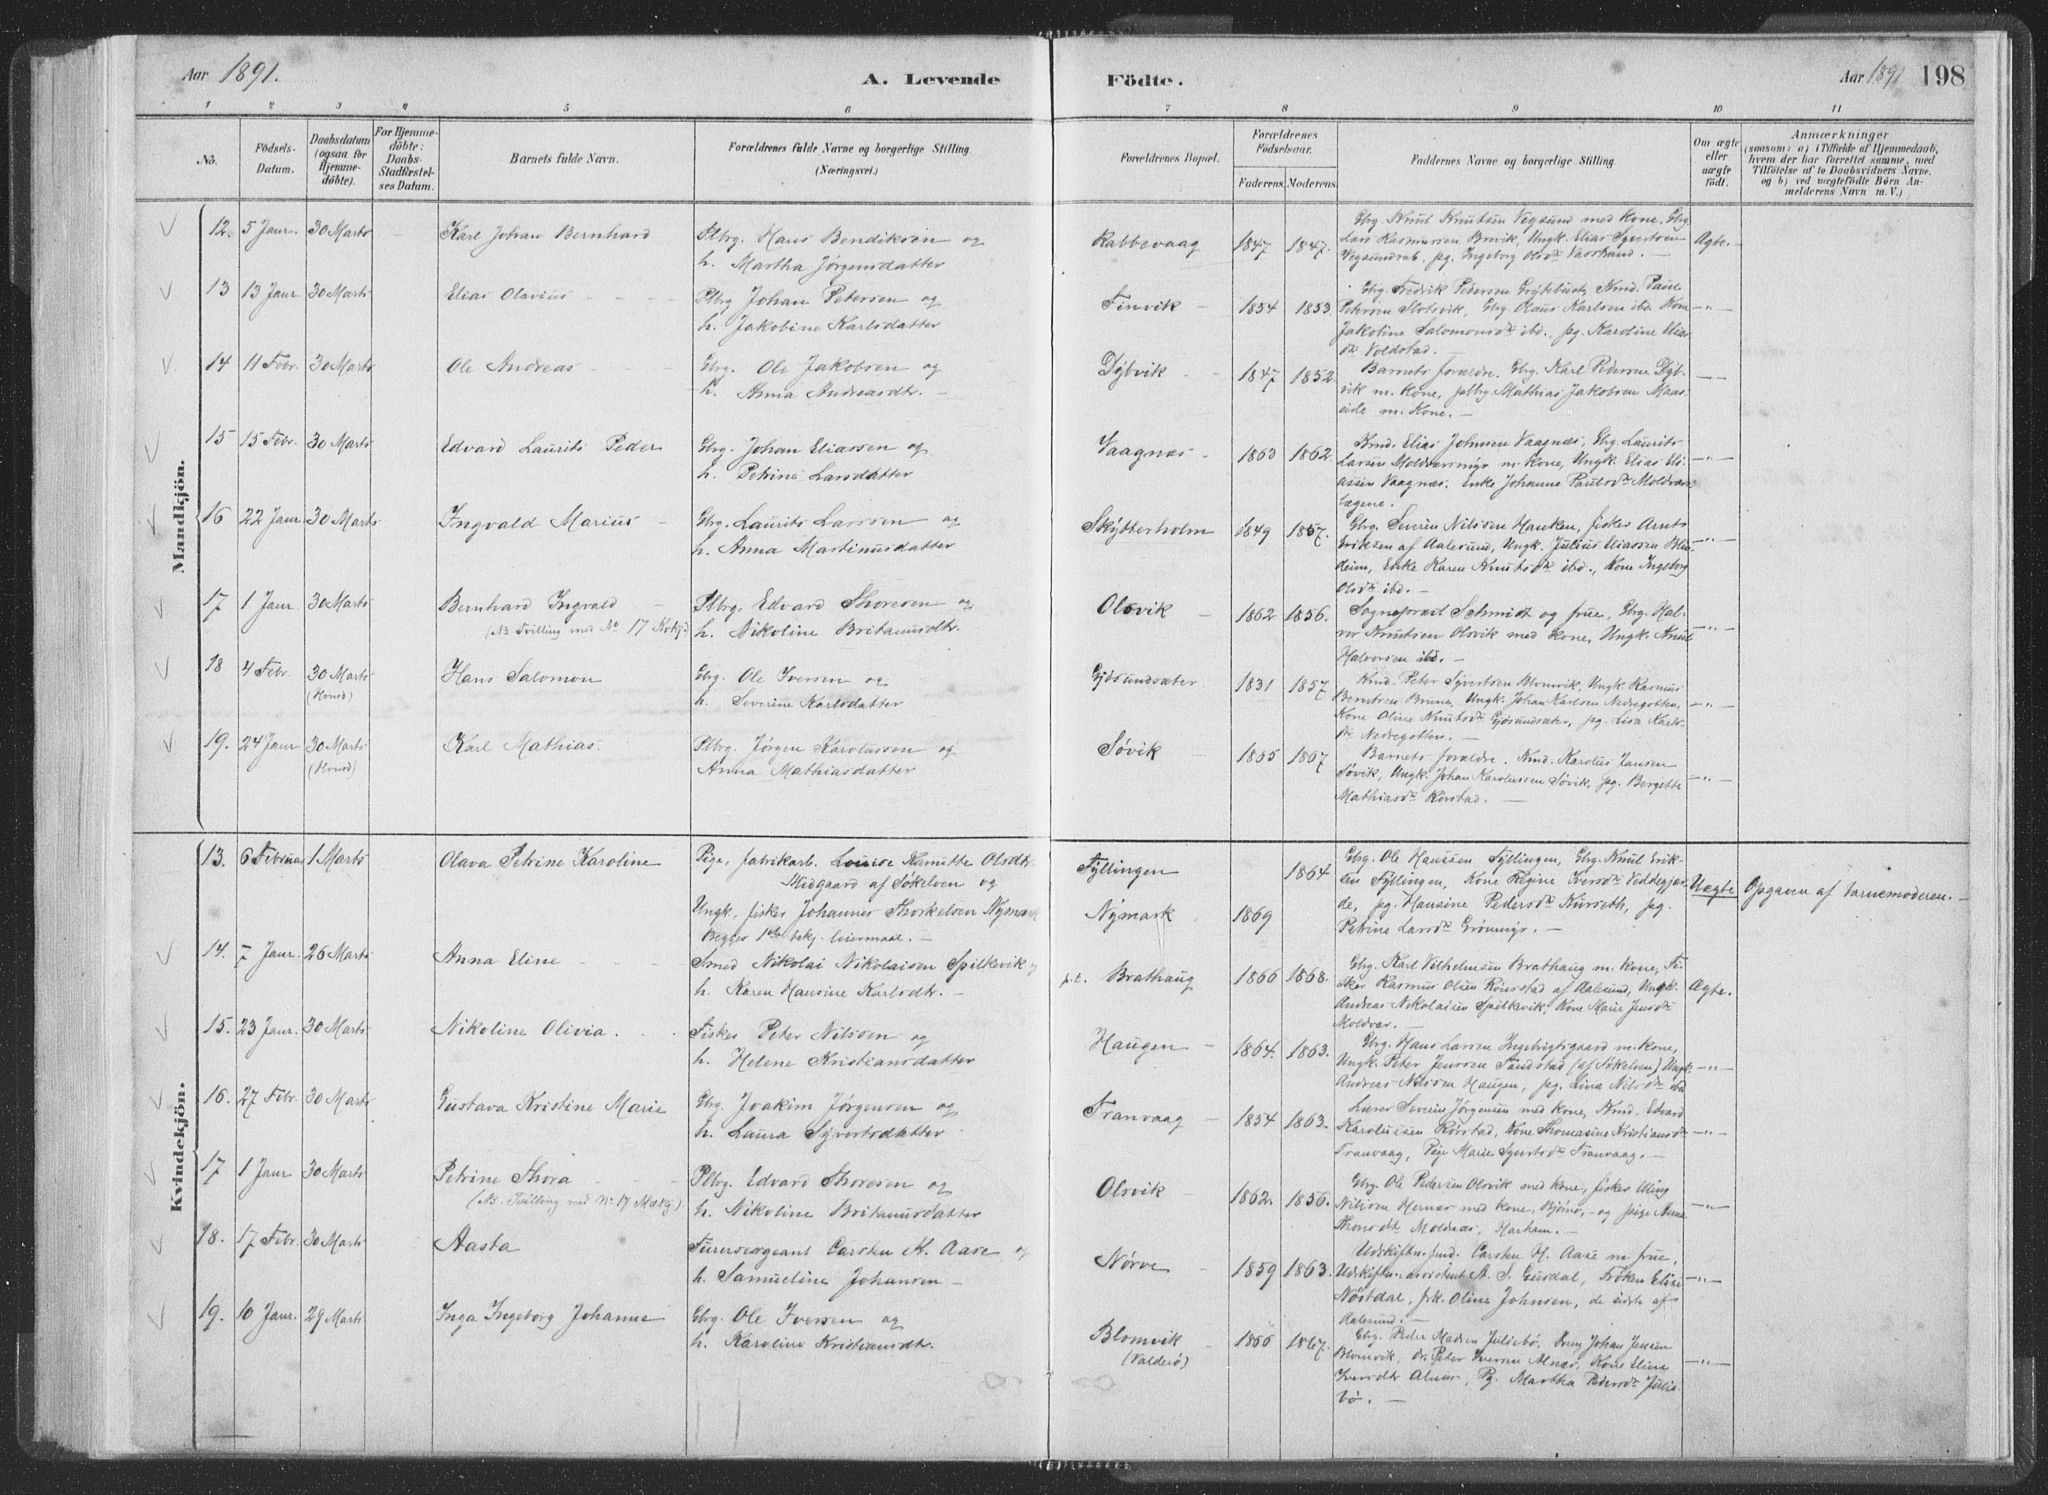 Aar 1891.
A. Levende
Födte.
Aar 1891
198
1 2 3 4 5 6 7 8 9 10 11
No.
Födsels-Datum.
Daabsdatum (ogsaa for Hjemmedöbte).
For Hjemmedöbte: Daabs-Stadfæstelses Datum.
Barnets fulde Navn.
Forældrenes fulde Navne og borgerlige Stilling. (Næringsvei.)
Forældrenes Bopæl.
Forældrenes Födselsaar.
Faderens. Moderens.
Faddernes Navne og borgerlige Stilling.
Om ægte eller uægte födt.
Anmærkninger
(saasom: a) i Tilfælde af Hjemmedaab, hvem der har forrettet samme, med Tilföielse af to Daabsvidners Navne, og b) ved uægtefödte Børn Anmelderens Navn m. V.)
Mandkjön.
12. 5 Janr. 30 Marts Karl Johan Bernhard Plbrg. Hans Bendiksen og
h. Martha Jørgensdatter
Rabbevaag 1847 1847.
Gbrg. Knut Knutsen Vegsund med Kone, Gbrg.
Lars Rasmussen Brevik, Ungk. Elias Syvertsen
Vegsundrab, pg. Ingeborg Olsdr Vasstrand. –
Ægte. –
13 13 Janr. 30 Marts Elias Olavius Plbrg Johan Petersen og
h. Jakobine Karlsdatter
Finvik 1854 1853.
Gbrg. Fredrik Pedersen Grytebust, Kmd. Paul
Petersen Slotsvik, Gbrg. Olaus Karlsen ibd. Kone
Jakobine Salomonsdr ibd. pg. Karoline Elias
dr Voldstad. –
– " –
14 11 Febr. 30 Marts Ole Andreas Gbrg. Ole Jakobsen og
h. Anna Andreasdtr. –
Dybvik 1847 1852.
Barnets forældre. Gbrg. Karl Pedersen Dyb-
vik m. Kone, plbrg Mathias Jakobsen Maas-
eide m. Kone. –
15 15 Febr. 30 Marts Edvard Laurits Peder Gbrg. Johan Eliassen og
h. Petrine Larsdatter
Vaagnæs 1863 1862.
Kmd. Elias Johnsen Vaagnæs, Gbrg. Laurits
Larsen Moldværsmyr m. Kone, Ungk. Elias Eli-
assen Vaagnæs, Enke Johanne Paulsdr Moldvær
– " –
16 22 Janr 30 Marts Ingvald Marius Gbrg. Laurits Larsen og
h. Anna Martinusdatter
Skytterholm 1849 1857.
Gbrg. Severin Nilssen Hauken, fisker Arnt
Eriksen af Aalesund, Ungk. Julius Eliassen Blin-
deim, Enke Karen Knutsdr ibd., Kone Ingeborg
Olsdr ibd. –
– " –
17 1 Janr. 30 Marts Bernhard Ingvald
(NB Tvilling med No 17 Kvkj.)
Plbrg. Edvard Thoresen og
h. Nikoline Britanusdtr.
Olsvik 1862 1856.
Sogneprest Schmidt og frue, Gbrg. Hal-
vor Knutsen Olsvik med Kone, Ungk. Knut
Halvorsen ibd. –
– " –
18 4 Febr. 30 Marts (Hvusd) Hans Salomon Gbrg. Ole Iversen og
h. Severine Karlsdatter
Gjøsundsæter 1831 1857
Kmd. Peter Syvertsen Blomvik, Ungk Rasmus
Berntsen Brune, Ungk. Johan Karlsen Nedregotten,
Kone Oline Knutsdr Gjøsundsæter, pg. Lisa Karls-
dr Nedregotten. –
– " –
19. 24 Janr 30 Marts (Hvusd) Karl Mathias. Plbrg. Jørgen Karolussen og
Anna Mathiasdatter
Søvik 1865 1867
Barnets forældre. Kmd. Karolus Jansen
Søvik, Ungk. Johan Karolussen Søvik, pg. Bergitte
Mathiasdr Rørstad. –
– " –
Kvindekjön.
13. 6 Februar 1 Marts Olava Petrine Karoline Pige, fabrikarb. Louise Kanutte Olsdr.
Midgaard af Søkelven og
Ungk., fisker Johannes Thorkelsen Nymark
Begges 1ste bekj. leiermaal. –
Fyllingen 1864
Nymark 1869
Gbrg. Ole Hanssen Fyllingen, Gbrg. Knut Erik-
sen Fyllingen, Kone Regine Iversdr Veddegjær-
de, pg. Hansine Pedersdr Kurseth, pg.
Petrine Larsdr Grønmyr. –
Uægte Opgaven af barnemoderen. –
14. 7 Janr. 26 Marts Anna Eline Smed Nikolai Nikolaisen Spilkevik og
h. Karen Hansine Karlsdtr. –
p.t. Brathaug 1866 1868.
Gbrg. Karl Vilhelmsen Brathaug m. Kone, Fi-
sker Rasmus Olsen Rørstad af Aalesund, Ungk.
Andreas Nikolaisen Spilkevik, Kone Marie Jensdr
Moldvær. –
Ægte.
15. 23 Janr. 30 Marts Nikoline Olivia. Fisker Peter Nilssen og
h. Helene Kristiansdatter
Haugen 1864. 1863.
Gbrg. Hans Larsen Ingebrigtsgaard m. Kone,
Ungk. Peter Jenssen Tandstad (af Søkelven) Ungk.
Andreas Nilssen Haugen, pg. Lina Nilsdr ibd
– " –
16. 27 Febr. 30 Marts Gustava Kristine Marie Gbrg. Joakim Jørgensen og
h. Laura Syvertsdatter
Tranvaag 1854 1863.
Lærer Severin Jørgensen med Kone, Kmd. Edvard
Karolussen Rørstad, Kone Thomasine Kristiansdr
Tranvaag, Pige Marie Syvertsdr Tranvaag. –
– " –
17 1 Janr 30 Marts Petrine Thora
(NB. Tvilling med No 17 Mækj.)
Plbrg. Edvard Thoresen og
h. Nikoline Britanusdatter
Olsvik 1862. 1856.
Gbrg. Ole Pedersen Olsvik med Kone, fisker
Nilssen Hernæs med Kone, – og pige Anna
Moldnæs, Harham. –
– " –
18. 17 Febr. 30 Marts Aasta Furersergeant Carsten H. Aase og
h. Samueline Johansen –
Nørve 1859 1863.
Udskiftn. fmd. Carsten H. Aase m. frue,
Udskiftn. assistent Gurdal, Frøken Elise
Nøstdal, frk. Oline Johnsen, de sidste af
Aalesund. –
– " –
19. 10 Janr. 29 Marts Inga Ingeborg Johanne Gbrg. Ole Iversen og
h. Karoline Kristiansdtr.
Blomvik (Valderø) 1866 1867.
Gbrg. Peder Madsen Juliebø, Johan Jensen
Blomvik, dr. Peter Iversen Alnæs, Kone Eline
Iversdtr Alnæs, Pg. Martha Pedersdr Julie-
bø. –
– " –